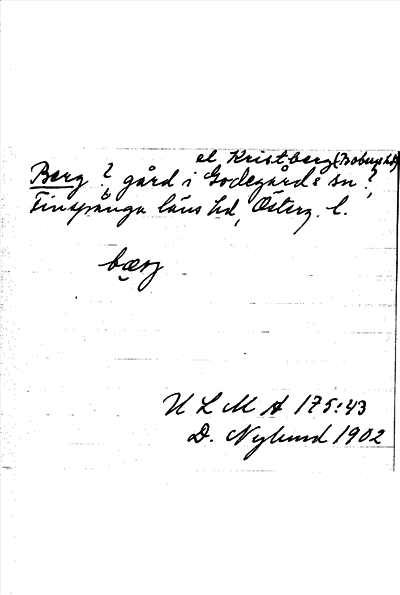 el. Kristberg (Bobergs hd)
Berg ? gård i Godegårds sn ?,
Finspånga läns hd, Österg. l.
bærj
U L M A 175:43
D. Nylund 1902